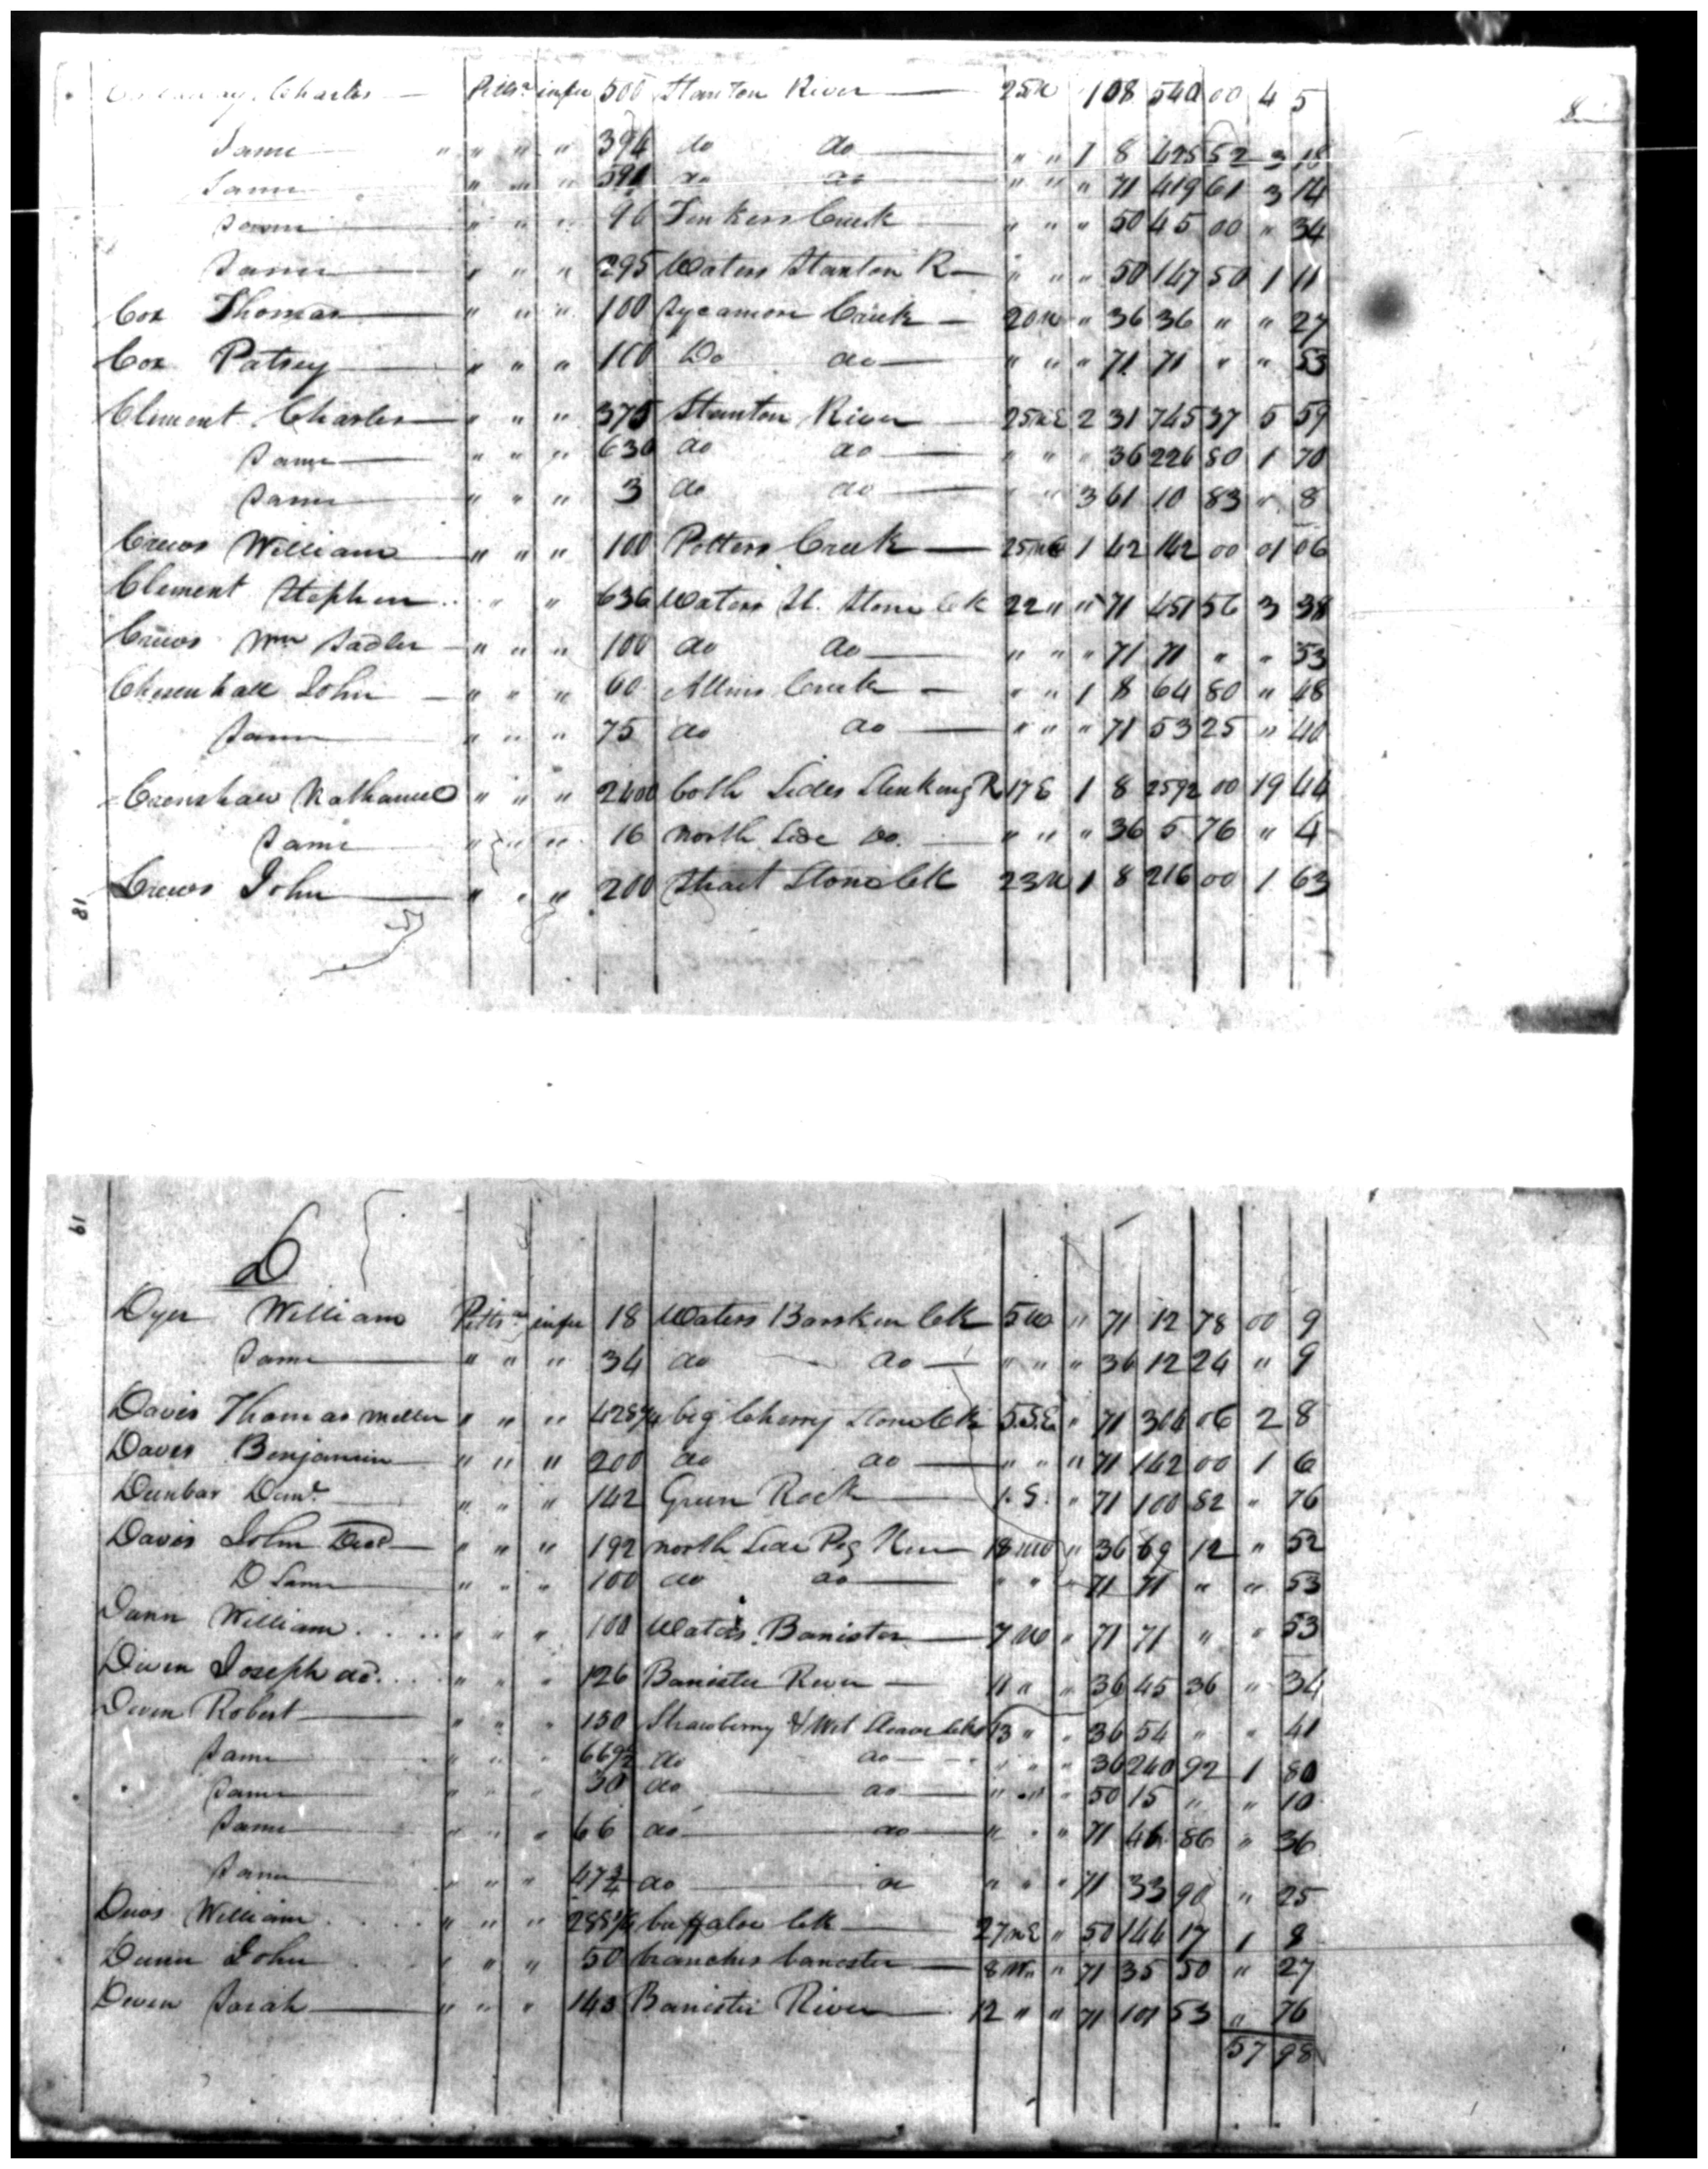 Charles — Pitts.a in fee 500 Stanton River — 25 N 1 08 540 00 4 5
8
Same — " " " " 394 do do — " " 1 8 425 52 3 18
Same " " " 591 do do — " " " 71 419 61 3 14
Same " " " 90 Tinkers Creek " " " 50 45 00 " 34
Same — " " " 295 Waters Stanton R — " " " 50 147 50 1 11
Cox Thomas — " " " 100 Sycamore Creek — 20 N " 36 36 " " 27
Cox Patsey — " " " 100 Do do — " " " 71 71 " " 53
Clement Charles — " " " 375 Stanton River — 25 N E 2 31 745 37 5 59
Same — " " " 630 do do — " " " 36 226 80 1 70
Same — " " " 3 do do — " " 3 61 10 83 " 8
Crews William — " " " 100 Potters Creek — 25 N E 1 42 142 00 01 06
Clement Stephen .. " " " 636 Waters St. Stone Ck 22 " " 71 451 56 3 38
Crews Wm Sadler — " " " 100 do do — " " " 71 71 " " 53
Chesenhall John — " " " 60 Allens Creek — " " 1 8 64 80 " 48
Same — " " " 75 do do — " " " 71 53 25 " 40
Crenshaw Nathaniel " " " 2400 both Sides Stinking R 17 E 1 8 2592 00 19 44
Same — " " " 16 north Side do. — " " " 36 5 76 " 4
Crews John — " " " 200 Strait Stone Ck 23 N 1 8 216 00 1 63
18
19
D
Dyer William Pitts.a in fee 18 Waters Barskin Ck 5 W " 71 12 78 00 9
Same — " " " 34 do do — " " " 36 12 24 " 9
Davis Thomas Miller " " " 428 1/4 big Cherry Stone Ck 5.S.E " 71 304 06 2 8
Daves Benjamin — " " " 200 do do — " " " 71 142 00 1 6
Dunbar Davd. — " " " 142 Green Rock — 1. S. " 71 100 82 " 76
Davis John Decd — " " " 192 north Side Pig River — 18 NW " 36 69 12 " 52
D Same — " " " 100 do do — " " " 71 71 " " 53
Dann William .... " " " 100 Waters Banister — 7 W " 71 71 " " 53
Diven Joseph " " " 126 Banister River — 11 " " 36 45 36 " 34
Diven Robert — " " " 150 Strawberry & Wet Sleave Cks 13 " " 36 54 " " 41
Same — " " " 669 do do — " " " 36 240 92 1 80
Same — " " " 30 do — do — " " " 50 15 " " 10
Same — " " " 66 do — do — " " " 71 46 86 " 36
Same — " " " 47 3/4 do — do " " " 71 33 90 " 25
William .... " " " 288 buffaloe Ck — 27 N E " 50 144 17 1 8
Dunn John .. " " " 50 branches banester — 8 W " 71 35 50 " 27
Diven Sarah — " " " 143 Banister River — 12 " " 71 101 53 " 76
57 98